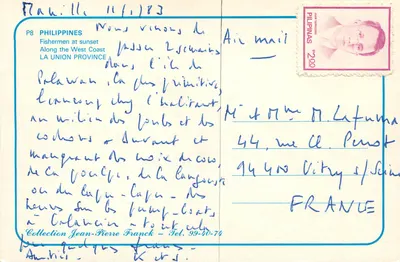 Manille 11/1/83
P8 PHILIPPINES
Fishermen at sunset
Along the West Coast
LA UNION PROVINCE
Nous venons de
passer 2 semaines
dans l'île de
Palawan, la plus primitive,
beaucoup chez l'habitant,
au milieu des poules et des
cochons. Buvant et
mangeant des noix de coco,
de la poulpe, de la langouste
ou du lapu-lapu. des
heures sur les pump-boats
à balancier - tout cela
pour quelques francs.
Amitiés. K et J.
Collection Jean-Pierre Franck - Tel. 99-40-74
Air mail
PILIPINAS
Mr et Mme M. Lafuma
44, rue Cl. Perrot
94400 Vitry s/Seine
FRANCE